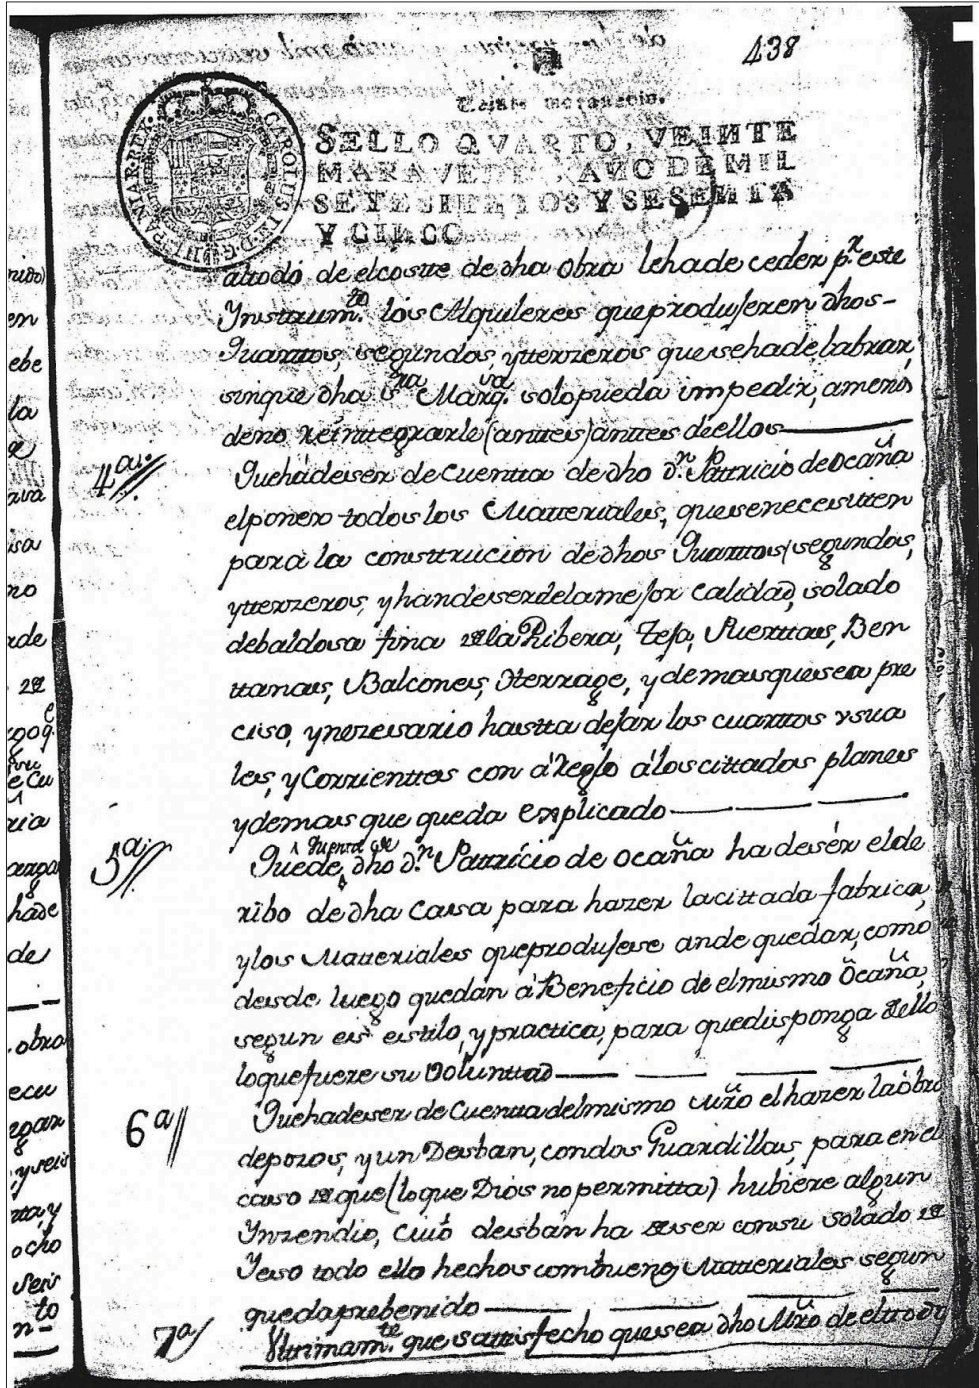 438
Veinte maravedis.
CAROLUS III D.G. HISPANIAR. REX
SELLO QVARTO, VEINTE
MARAVEDI , AÑO DE MIL
SETECIENTOS Y SESENTA
Y CINCO
altodó de elcostte de dha obra lehade ceder p.r este
Ynstrum.to los Alquileres queprodujeren dhos-
Quarttos, segundos, ytterzeros que sehade labrar,
sinque dha S.ra Marq.sa solopueda impedir, ameños
deno reinttegrarle (anttes) anttes déellos
4ª// Quehádeser de Cuentta de dho D.n Pattricio de Ocaña
elponer todos los Matteriales, quesenecesitten
para la consttrucion de dhos Quarttos, segundos,
ytterzeros, yhandeserdelamejor calidad, solado
debaldosa fina de la Ribera, Teja, Puerttas, Ben
ttanas, Balcones, Herrage, y demasquesea pre
ciso, ynezesario hastta dejar los cuarttos vsua
les, y Corrienttes con áReglo álos cittados planes
ydemas que queda explicado
5ª// Quéde quentta de dho D.n Pattricio de Ocaña ha desér elde
ribo de dha Casa para hazer lacittada fabrica,
ylos Matteriales queprodujese ande quedar, como
desde luego quedan á Beneficio de elmismo Ocaña,
segun es estilo, y practica, para quedisponga dello
loquefuere su Volunttad
6ª// Quehadeser de Cuentta delmismo Mrõ elhazer laóbra
depozos, y un Desban, condos Guardillas, para en el
caso de que (lo que Dios no permitta) hubiere algun
Ynzendio, cuió desban ha de ser consu solado de
Yeso todo ello hechos combuenos Matteriales segun
queda prebenido
7ª/ Vltimam.te que sattisfecho quesea dho Mrõ de eltodo y
en
ebe
la
no
de
obra
ecu
ocho
seis